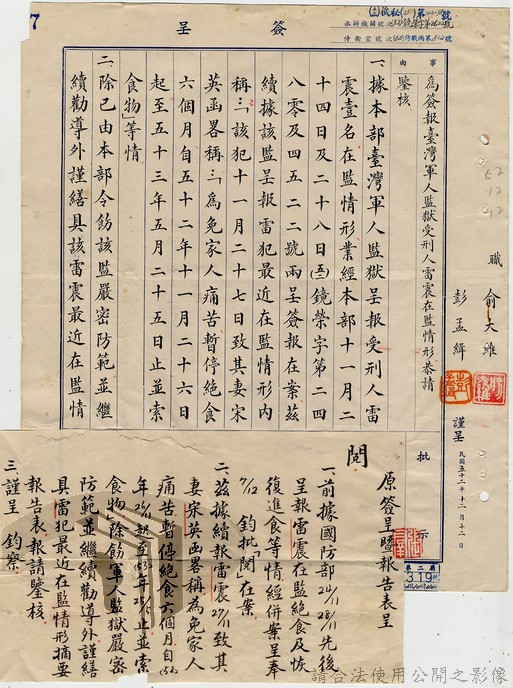 簽呈
事由
為簽報臺灣軍人監獄受刑人雷震在監情形恭請
鑒核
一、據本部臺灣軍人監獄呈報受刑人雷
震壹名在監情形業經本部十一月二
十四日及二十八日(五)鏡榮字第二四
八零及四五二二號兩呈簽報在案茲
續據該監呈報雷犯最近在監情形內
稱:「該犯十一月二十七日致其妻宋
英函畧稱:「為免家人痛苦暫停絕食
六個月自五十二年十一月二十六日
起至五十三年五月二十五日止並索
食物」等情
二、除已由本部令飭該監嚴密防範並繼
續勸導外謹繕具該雷震最近在監情
職 俞大維
彭孟緝 謹呈
民國五十二年十二月十二日
批示
52
12
12
第二局
319
7
原簽呈暨報告表呈
閱
一、前據國防部24/11 28/11先後
呈報雷震在監絕食及恢
復進食等情經併案呈奉
7/12 鈞批「閱」在案
二、茲據續報雷震27/11致其
妻宋英函畧稱為免家人
痛苦暫停絕食六個月自(52)
年26/11起至(53)年25/5止並索
食物除飭軍人監獄嚴密
防範並繼續勸導外謹繕
具雷犯最近在監情形摘要
報告表報請鑒核
三、謹呈 鈞察
請合法使用公開之影像